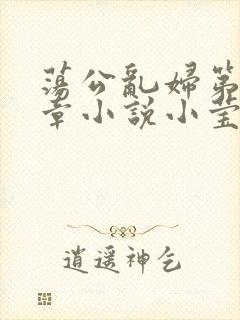 蕩公亂婦第
章小說小莹
逍遥神乞